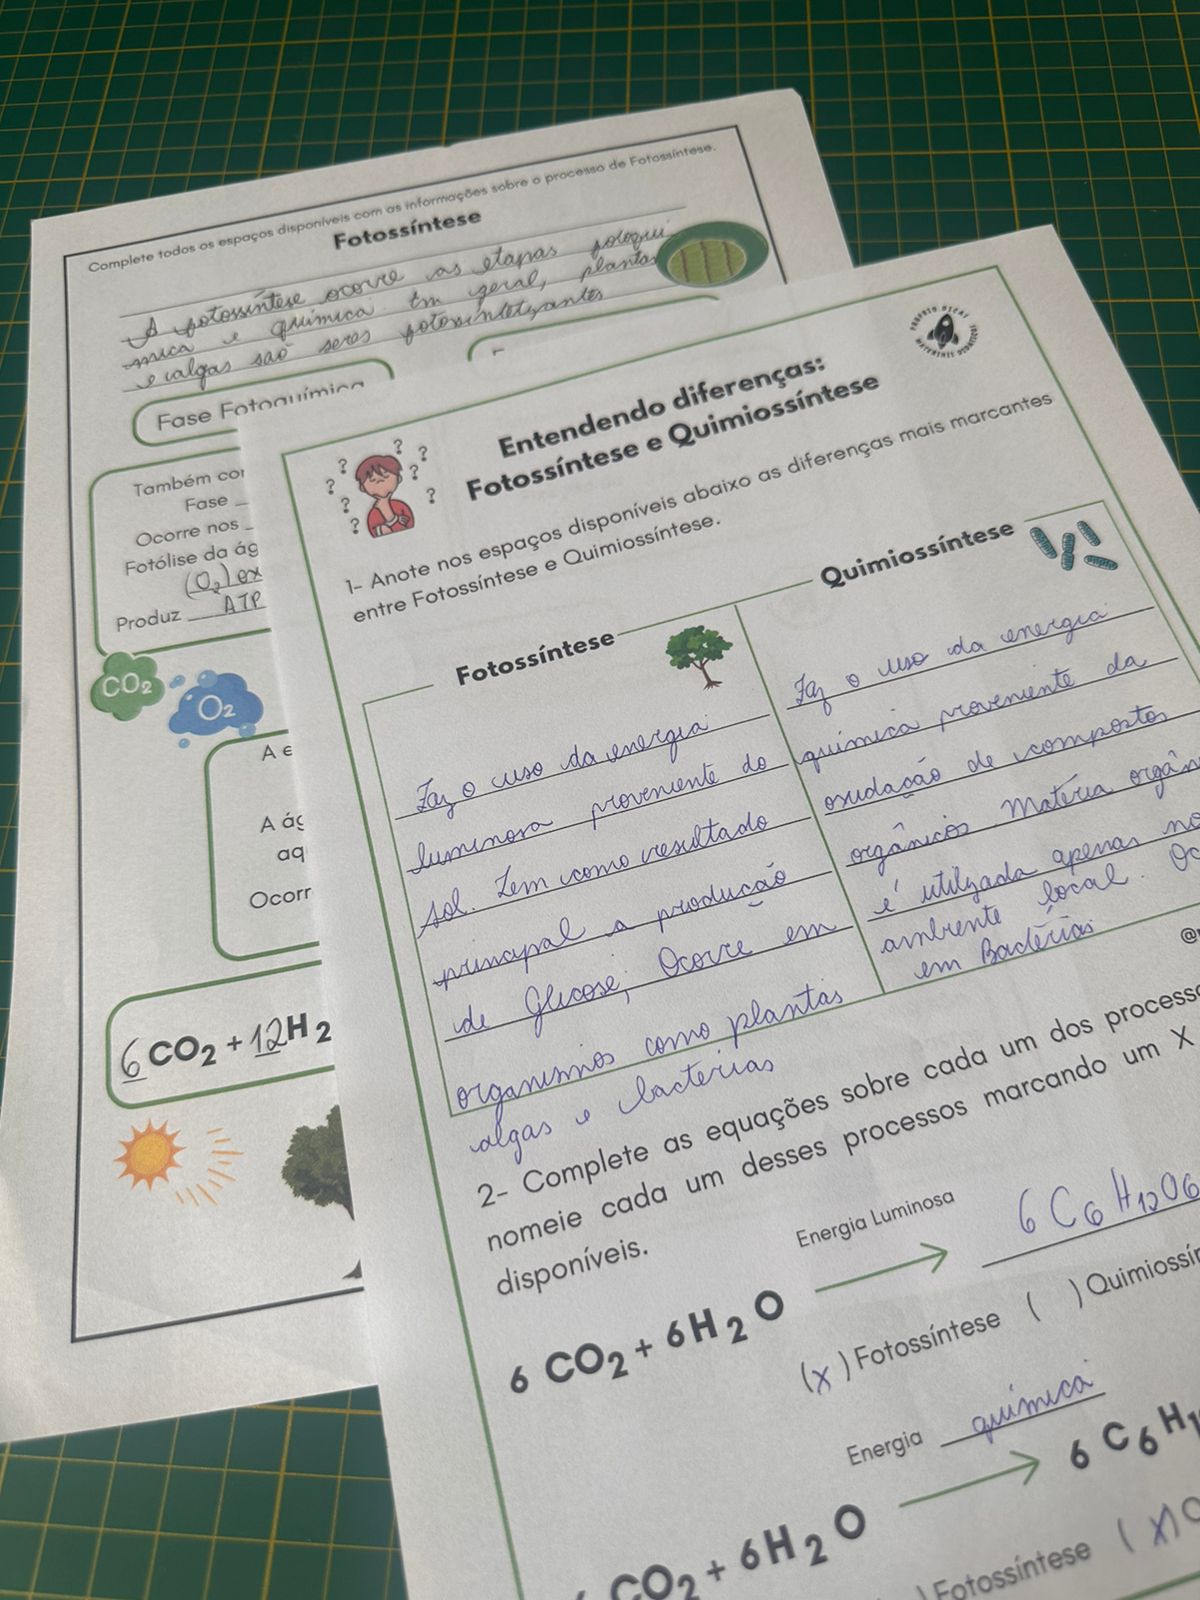 Complete todos os espaços disponíveis com as informações sobre o processo de Fotossíntese.
Fotossíntese
A fotossíntese ocorre as etapas fotoquí
mica e química. Em geral, plantas
e algas são seres fotossintetizantes
Fase Fotoquímica
Também con
Fase
Ocorre nos
Fotólise da ág
(O2) ox
Produz ATP
CO2
O2
A e
A ág
aq
Ocorr
6 CO2 + 12 H2
PROJETO DECAY
MATERIAIS DIDÁTICOS
Entendendo diferenças:
Fotossíntese e Quimiossíntese
1- Anote nos espaços disponíveis abaixo as diferenças mais marcantes
entre Fotossíntese e Quimiossíntese.
Fotossíntese
Faz o uso da energia
luminosa proveniente do
sol. Tem como resultado
principal a produção
de Glicose; Ocorre em
organismos como plantas
algas e bactérias
Quimiossíntese
Faz o uso da energia
química proveniente da
oxidação de compostos
orgânicos. Matéria orgân
é utilizada apenas no
ambiente local. Oc
em Bactérias
2- Complete as equações sobre cada um dos processo
nomeie cada um desses processos marcando um X
disponíveis.
Energia Luminosa
6 CO2 + 6H2O
6 C6H12O6
(x) Fotossíntese ( ) Quimiossín
Energia química
CO2 + 6H2O
6 C6H1
) Fotossíntese (X) Q